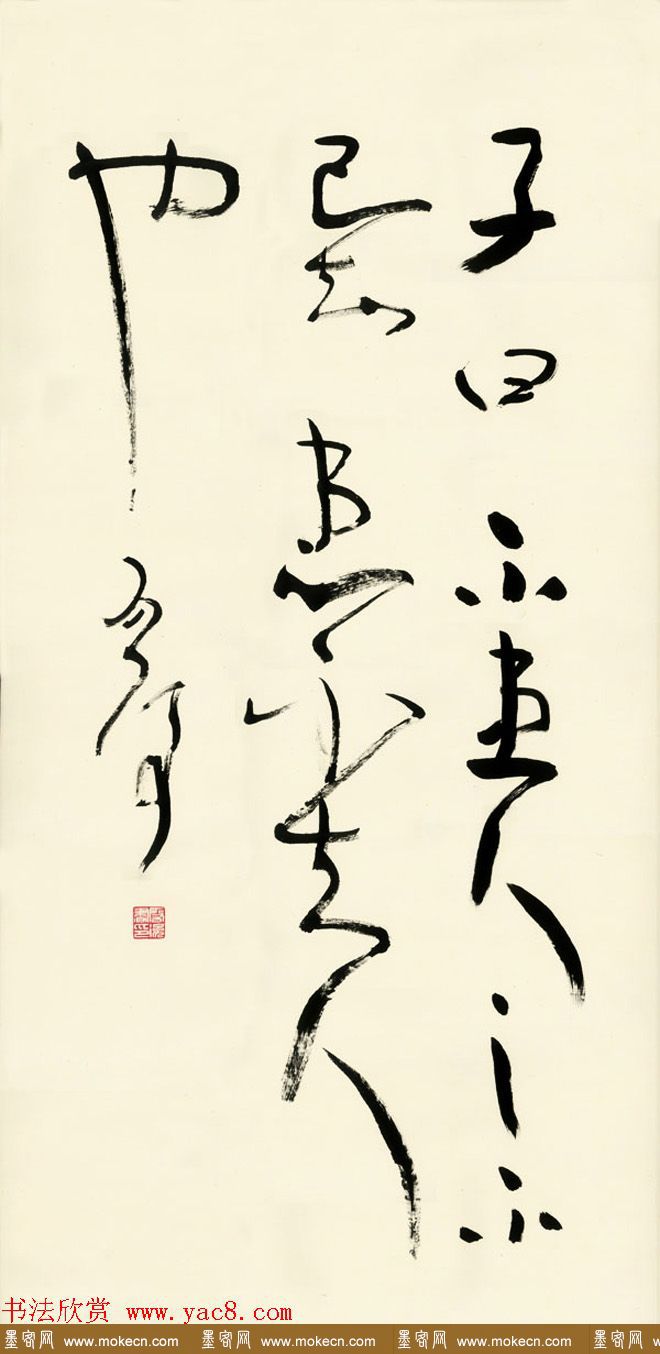 子曰不患人之不
己知患不知人
也
书法欣赏 www.yac8.com
墨客网 www.mokecn.com 墨客网 www.mokecn.com 墨客网 www.mokecn.com 墨客网 w